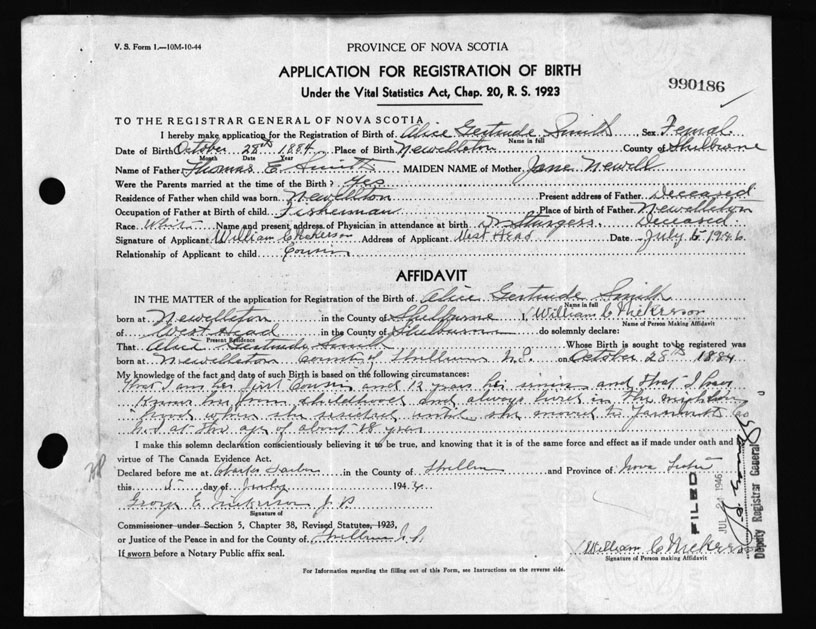 V. S. Form 1.—10M-10-44
PROVINCE OF NOVA SCOTIA
APPLICATION FOR REGISTRATION OF BIRTH
990186
Under the Vital Statistics Act, Chap. 20, R. S. 1923
TO THE REGISTRAR GENERAL OF NOVA SCOTIA
I hereby make application for the Registration of Birth of Alice Gertrude Smith Sex Female
Name in full
Date of Birth October 28th 1884 Place of Birth Newellton County of Shelburne
Month Date Year
Name of Father Thomas E. Smith MAIDEN NAME of Mother Jane Newell
Were the Parents married at the time of the Birth? Yes
Residence of Father when child was born Newellton Present address of Father Deceased
Occupation of Father at Birth of child Fisherman Place of birth of Father Newellton
Race White Name and present address of Physician in attendance at birth Dr Sturgers Deceased
Signature of Applicant William C Nickerson Address of Applicant West Head Date July 5 1946
Relationship of Applicant to child Cousin
AFFIDAVIT
IN THE MATTER of the application for Registration of the Birth of Alice Gertrude Smith
Name in full
born at Newellton in the County of Shelburne I, William C Nickerson
Name of Person Making Affidavit
of West Head in the County of Shelburne do solemnly declare:
Present Residence
That Alice Gertrude Smith Whose Birth is sought to be registered was
born at Newellton county of Shelburne N.S. on October 28th 1884
My knowledge of the fact and date of such Birth is based on the following circumstances:
that I am her first cousin and 12 years her senior and that I have
known her from childhood and always lived in the neighbor
hood where she resided until she moved to Yarmouth
at the age of about 18 years
I make this solemn declaration conscientiously believing it to be true, and knowing that it is of the same force and effect as if made under oath and by
virtue of The Canada Evidence Act.
Declared before me at Charles Harbor in the County of Shelburne and Province of Nova Scotia
this 5 day of July 1946
George E. Nickerson J. P.
Signature of
Commissioner under Section 5, Chapter 38, Revised Statutes, 1923,
or Justice of the Peace in and for the County of Shelburne
If sworn before a Notary Public affix seal.
William C Nickerson
Signature of Person making Affidavit
FILED
JUL 24 1946
Deputy Registrar General
For Information regarding the filling out of this Form, see Instructions on the reverse side.